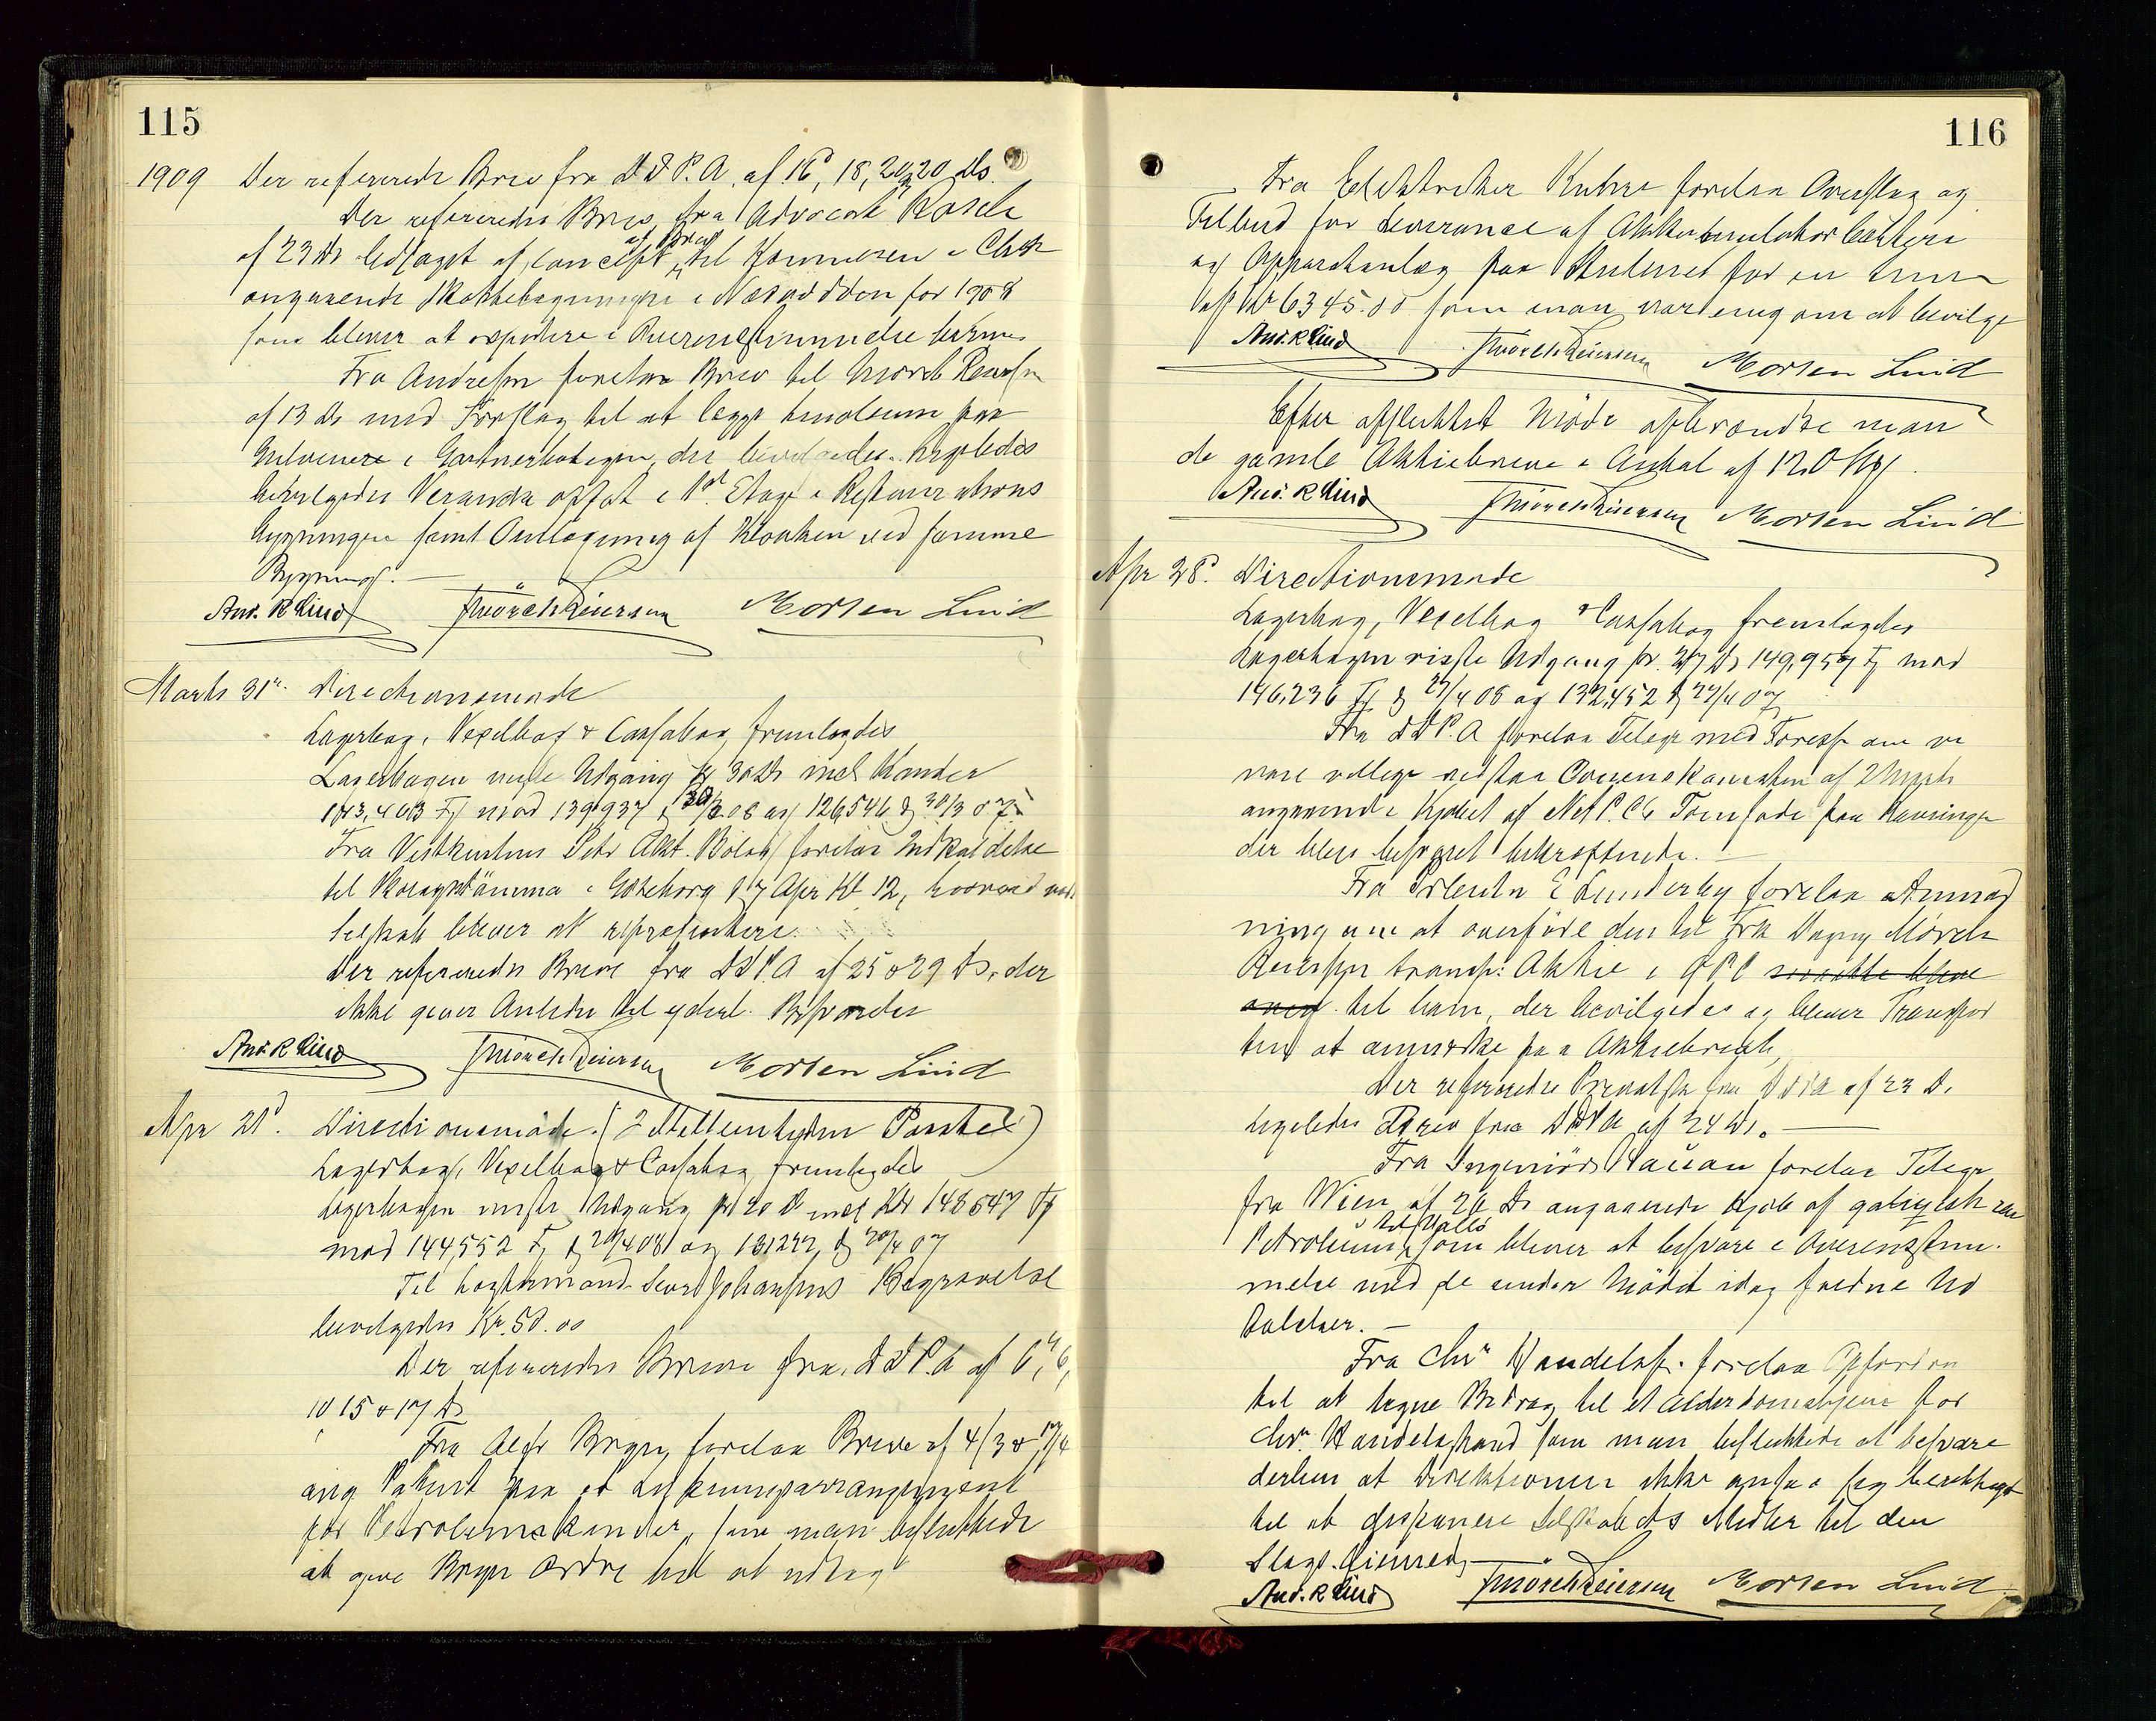 115
1909 Der refereredes Brev fra D.D.P.A. af 16, 18, 20, 20 ds.
Der refereredes Brev fra Advocat Rasch
af 23 ds ledsaget af concept af Brev til Kommunen
angaaende Skattebagningen i Nesodden for 1908
som blever at expedere i Overensstemmelse hermed
Fra Andresen forelaa Brev til Mørch Reiersen
af 13 ds med Forslag til at lægge Linoleum paa
Gulvene i Gartnerboligen, der bevilgedes. Ligeledes
bevilgedes Veranda opsat i 1st Etage i Restaurations
bygningen samt Omlægning af Kloaken ved samme
Bygning. —
And. R Lind J Mörch Reiersen Morten Lind
Marts 31te Directionsmøde
Lagerbog, Vexelbog & Cassabog fremlagdes
Lagerbogen viste Udgang pr 30 ds incl Kander
143,403 Fj mod 139,937 pr 30/3 08 og 126,546 pr 30/3 07.
Fra Vestkustens Petr Akt. Bolag forelaa Indkaldelse
til Bolagsstämma i Göteborg 17 Apr Kl 12, hvorved vort
Selskab blever at repræsentere.
Der refereredes Breve fra DDPA af 25 & 29 ds, der
ikke giver Anledn til yderl. Besvarelse
And. R Lind J Mörch Reiersen Morten Lind
Apr 21d. Directionsmøde. (2 Mellemlyden Paaske)
Lagerbog, Vexelbog & Cassabog fremlagdes
Lagerbogen viste Udgang pr 20 ds incl Kdr 148547 Fj
mod 144,552 Fj pr 20/4 08 og 131242 pr 20/4 07
Til Lagerformand Sevrd Johansens Begravelse
bevilgedes Kr. 50.00
Der refereredes Breve fra DDP.A af 6, 6,
10 15 & 17 ds
Fra Alfr Bryn forelaa Breve af 4/3 & 17/4
ang Patent paa et arrangement
for Petroleumskander, som man besluttede
at give Bryn Ordre til at udtag
116
Fra Elektriker forelaa Overslag og
Tilbud for Leverance af Akkumulatorbatteri
og Apparatanlæg paa for en Sum
af Kr 6345.00 som man var enig om at bevilge
And. R Lind J Mörch Reiersen Morten Lind
Efter afsluttet Møde afbrændte man
de gamle Aktiebreve i Antal af 120 Stk.
And. R Lind J Mörch Reiersen Morten Lind
Apr 28d. Directionsmøde
Lagerbog, Vexelbog & Cassabog fremlagdes
Lagerbogen viste Udgang pr. 27 ds 149,957 Fj mod
146,236 Fj pr 27/4 08 og 132,452 pr 27/4 07
Fra DDP.A forelaa Telegr med Foresp om vi
vare villige vedstaa Overenskomsten af
angaaende Kjøbet af Tomt paa
der blev besvaret bekræftende. —
Fra E Lunderby forelaa Anmod
ning om at overføre den til Frk Dagny Mörch
Reiersen transp: Aktie i til ham, der bevilgedes og blever Transpor
ten at anmærke paa Aktiebrevet
Der refereredes Privatbr fra DDPA af 23 ds
ligeledes Brev fra DDPA af 24 ds. —
Fra Ingeniör Nauan forelaa Telegr
fra Wien af 26 ds angaaende Kjøb af galizisk raa
Petroleum, som blever at besvare i Overensstem-
melse med de under Mødet idag faldne Ud
talelser. —
Fra Chra Handelsf. forelaa Opfordrn
til at tegne Bidrag til et Alderdomshjem for
Chra. Handelsstand som man besluttede at besvare
derhen at Direktionen ikke anser sig berettiget
til at disponere Selskabets Midler til den
Slags Øiemed. —
And. R Lind J Mörch Reiersen Morten Lind